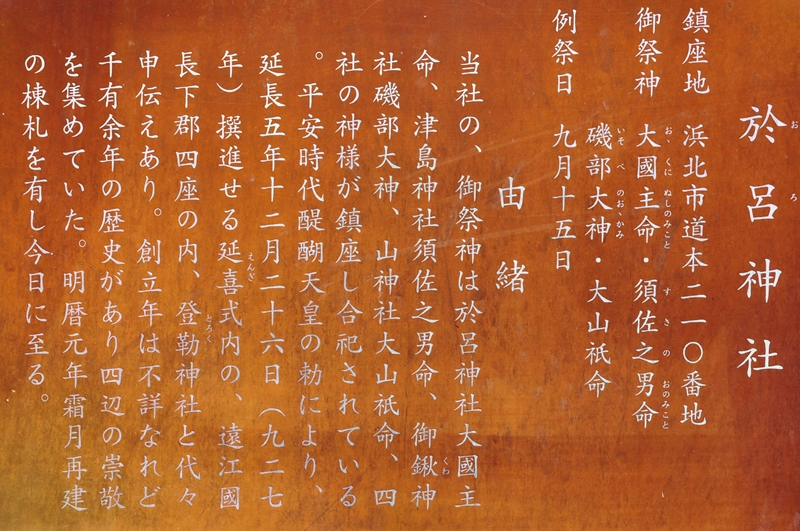 於呂神社
おろ
鎮座地 浜北市道本二一〇番地
御祭神 大國主命・須佐之男命
おゝくにぬしのみこと すさのおのみこと
磯部大神・大山祇命
いそべのおゝかみ
例祭日 九月十五日
由緒
当社の、御祭神は於呂神社大國主
命、津島神社須佐之男命、御鍬神
くわ
社磯部大神、山神社大山祇命、四
社の神様が鎮座し合祀されている
。平安時代醍醐天皇の勅により、
延長五年十二月二十六日（九二七
年）撰進せる延喜式内の、遠江國
えんぎ
長下郡四座の内、登勒神社と代々
とろく
申伝えあり。創立年は不詳なれど
千有余年の歴史があり四辺の崇敬
を集めていた。明暦元年霜月再建
の棟札を有し今日に至る。